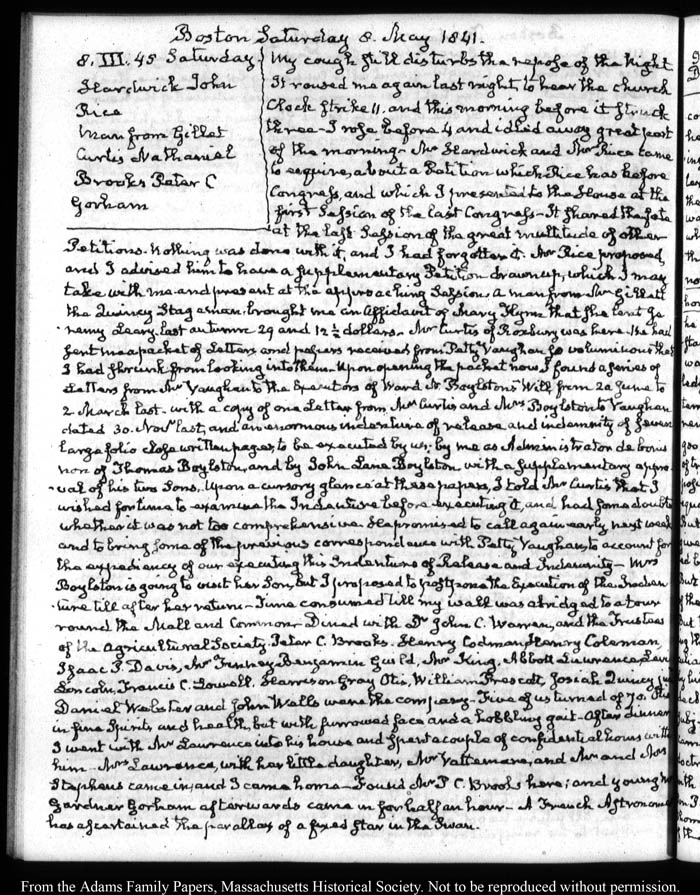 Boston Saturday 8. May 1841.
8. III. 45 Saturday
Hardwick John
Rice
Man from Gillet
Curtis Nathaniel
Brooks Peter C
Gorham
My cough still disturbs the repose of the night
It roused me again last night, to hear the church
Clock strike 11. and this morning before it struck
three - I rose before 4 and idled away great part
of the morning - Mr Hardwick and Mr Rice came
to enquire, about a Petition which Rice has before
Congress, and which I presented to the House at the
first Session of the last Congress - It shared the fate
at the last Session of the great multitude of other
Petitions. Nothing was done with it, and I had forgotten it. Mr Rice proposed,
and I advised him to have a supplementary Petition drawn up, which I may
take with me and present at the approaching Session. A man from Mr Gillett
the Quincy Stage man brought me an Affidavit of Mary Flynn that she lent Je
remy Leary last autumn 29 and 12½ dollars - Mr Curtis of Roxbury was here. He had
sent me a packet of Letters and papers received from Petty Vaughan so voluminous that
I had shrunk from looking into them. Upon opening the packet now I found a series of
Letters from Mr Vaughan to the Executors of Ward N. Boylston's Will from 2a June to
2 March last - with a copy of one Letter from Mr Curtis and Mrs Boylston to Vaughan
dated 30. Novr last, and an enormous indenture of release and indemnity of seven
large folio close written pages, to be executed by us: by me as Administrator de bonis
non of Thomas Boylston, and by John Lane Boylston with a supplementary appro
val of his two Sons. Upon a cursory glance at these papers, I told Mr Curtis that I
wished for time to examine the Indenture before executing it, and had some doubts
whether it was not too comprehensive. He promised to call again early next week
and to bring some of the previous correspondence with Petty Vaughan, to account for
the expediency of our executing this Indenture of Release and Indemnity - Mrs
Boylston is going to visit her Son, but I proposed to postpone the Execution of the Inden
ture till after her return - Time consumed till my walk was abridged to a tour
round the Mall and Common - Dined with Dr John C. Warren, and the Trustees
of the Agricultural Society. Peter C. Brooks. Henry Codman, Henry Coleman,
Isaac P. Davis, Mr Benjamin Guild, Mr King, Abbott Lawrence, Levi
Lincoln, Francis C. Lowell, Harrison Gray Otis, William Prescott, Josiah Quincy
Daniel Webster and John Wells were the company - Five of us turned of 70. Otis
in fine spirits and health, but with furrowed face and a hobbling gait - After dinner
I went with Mr Lawrence into his house and spent a couple of confidential hours with
him - Mrs Lawrence, with her little daughter, Mr Vattemare, and Mr and Mrs
Stephens came in, and I came home - Found Mr P. C. Brooks here; and young Mr
Gardner Gorham afterwards came in for half an hour - A French Astronomer
has ascertained the parallax of a fixed star in the Swan.
From the Adams Family Papers, Massachusetts Historical Society. Not to be reproduced without permission.